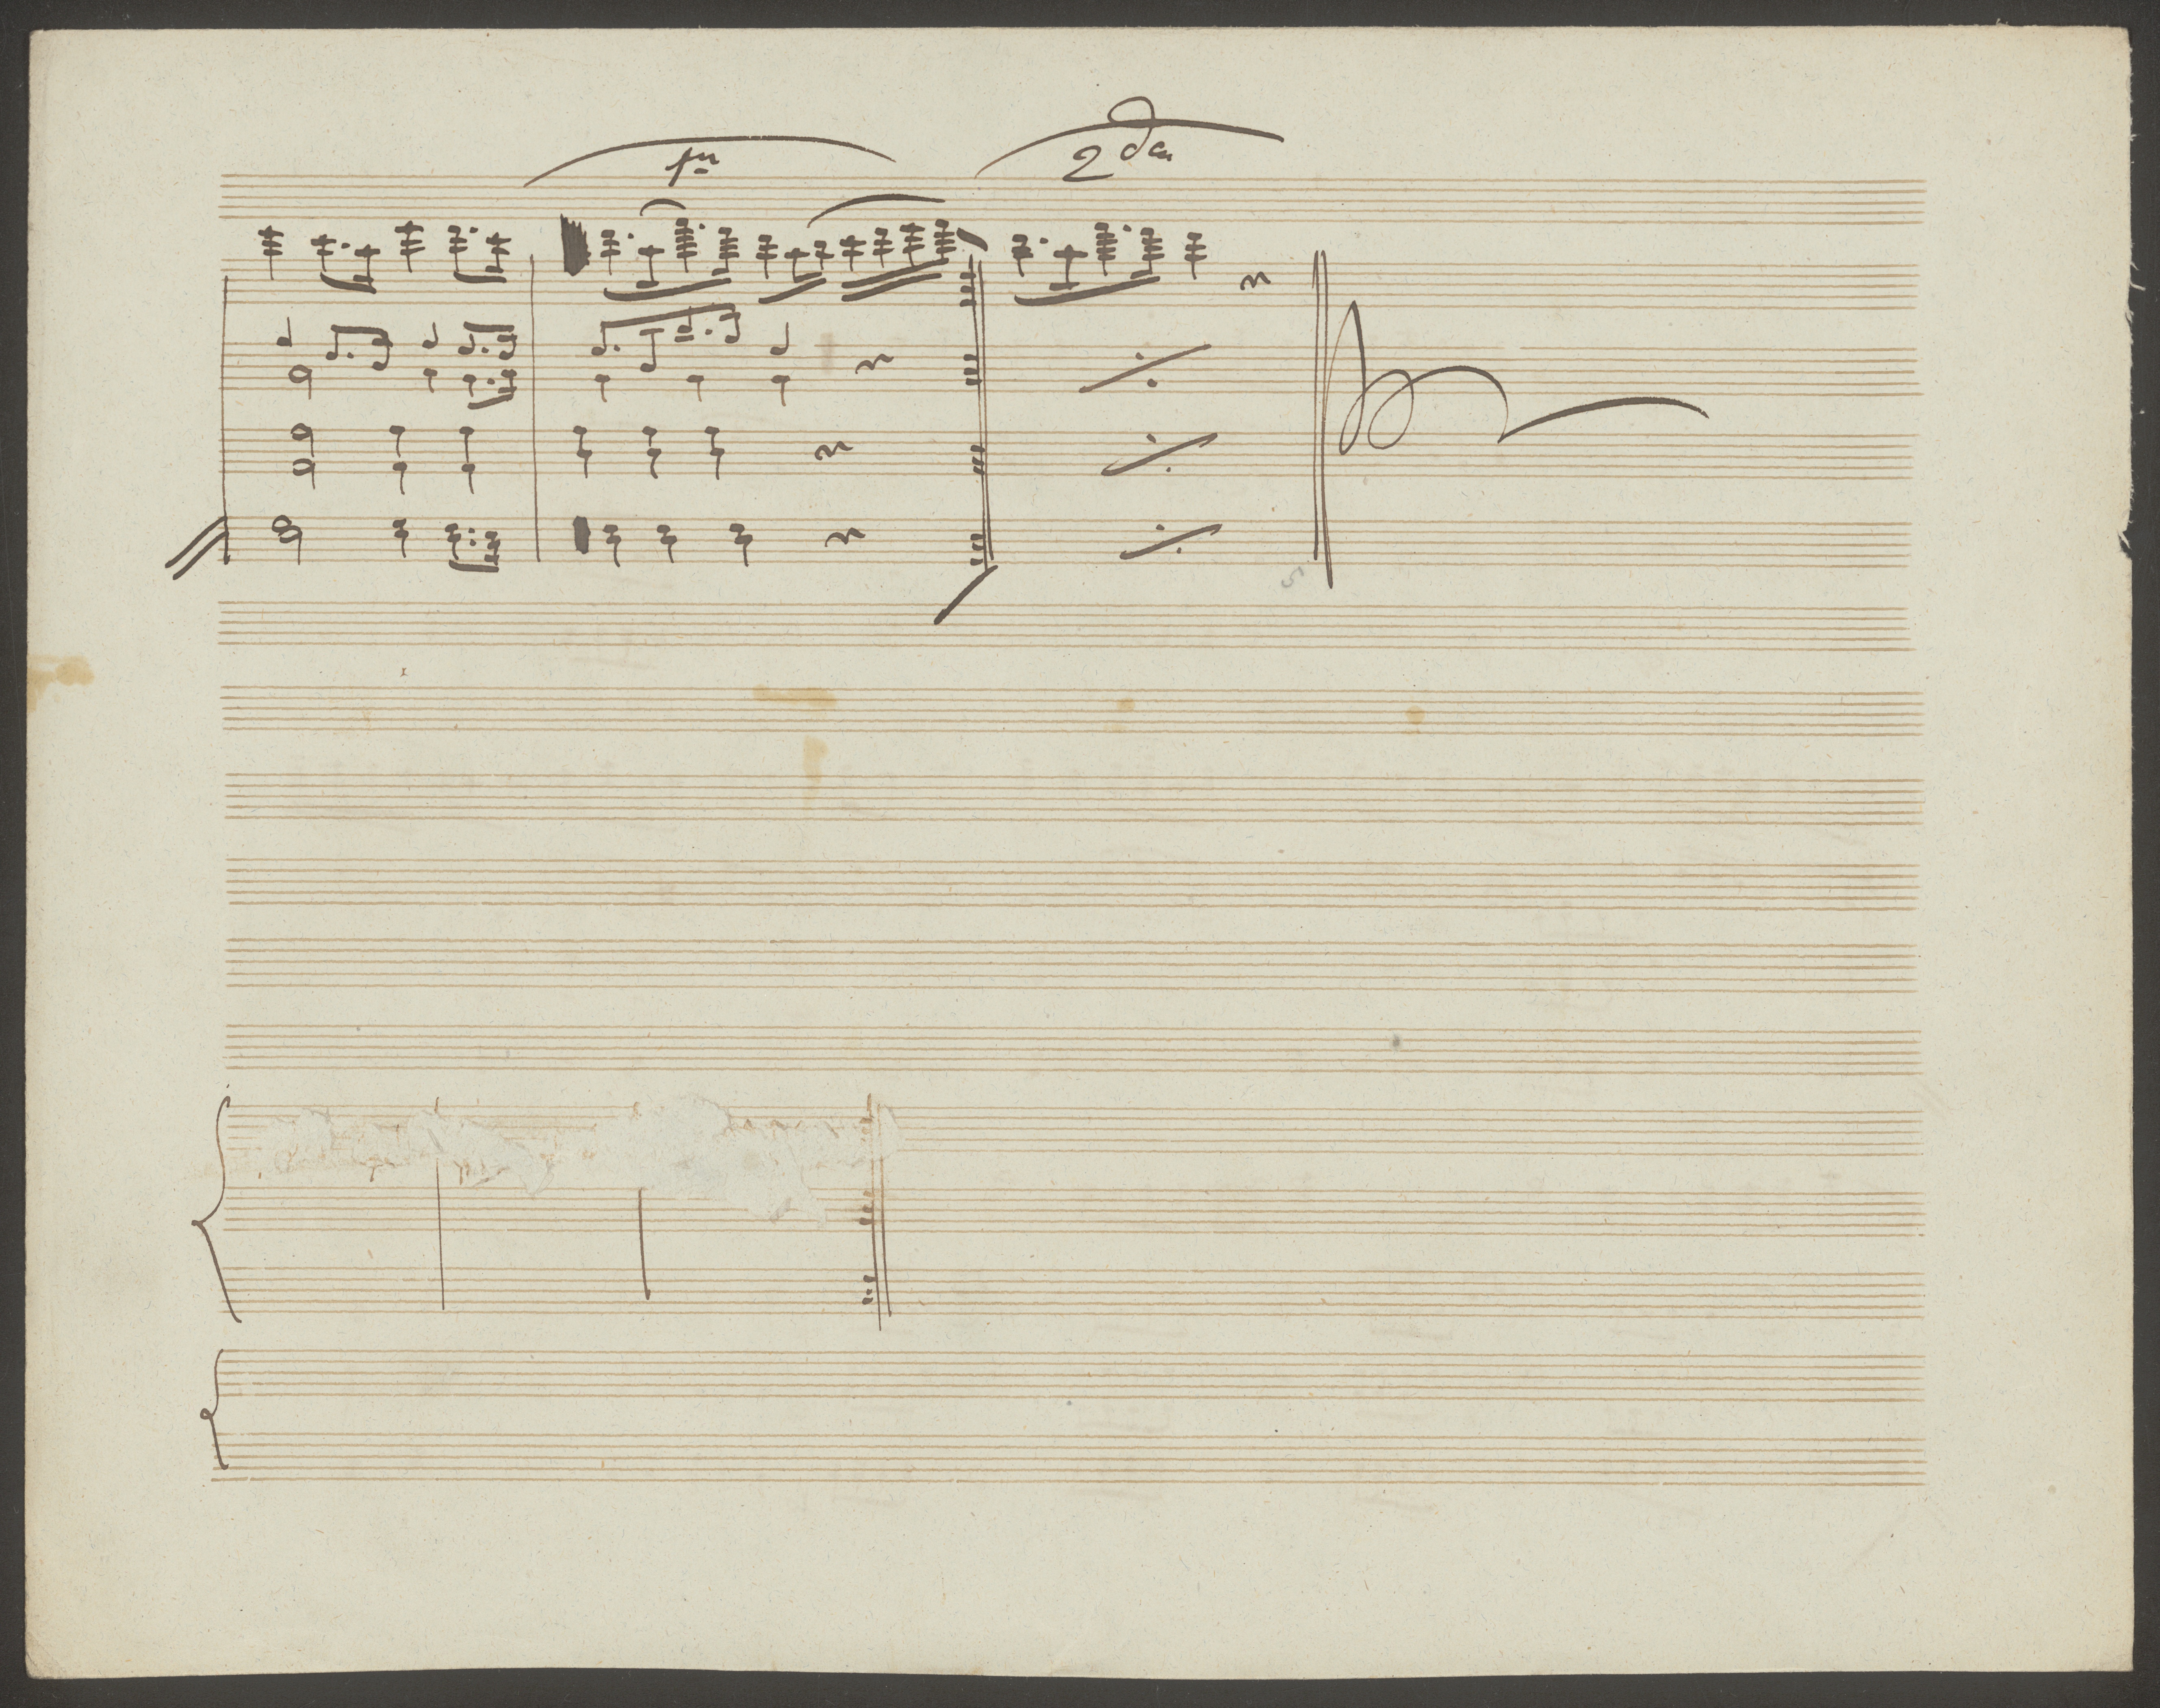 1ma 2da
5